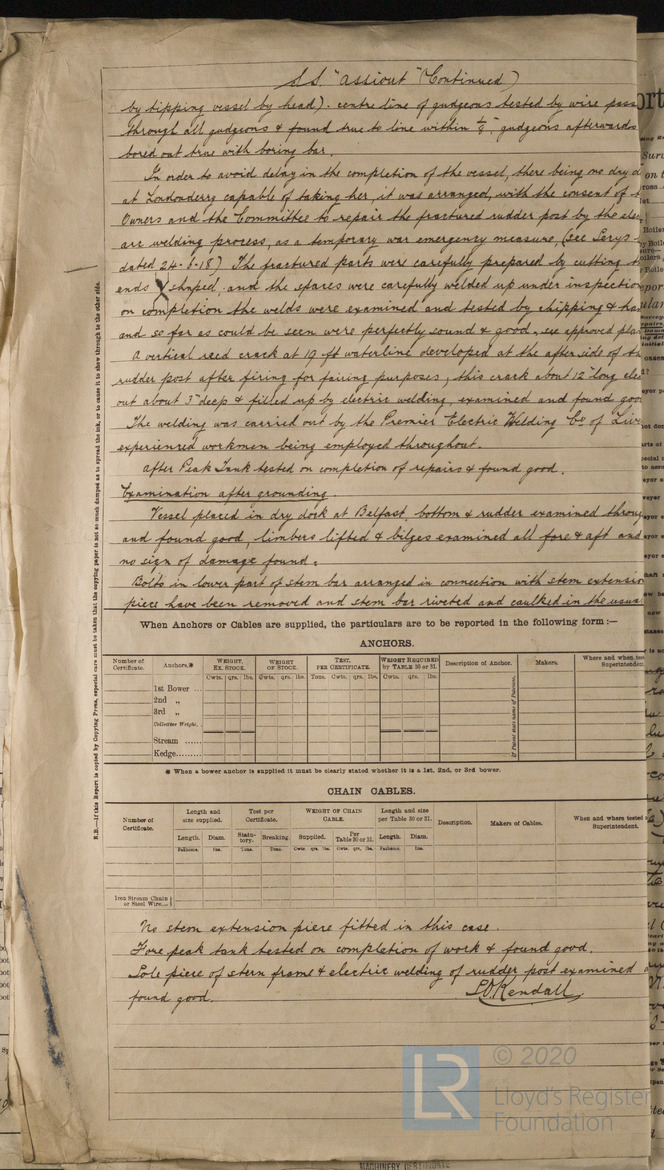 S.S. "Assiout" (Continued)
by tipping vessel by head). centre line of gudgeons tested by wire pass
through all gudgeons & found true to line within 1/8", gudgeons afterwards
bored out true with boring bar.
In order to avoid delay in the completion of the vessel, there being no dry d
at Londonderry capable of taking her, it was arranged, with the consent of t
Owners and the Committee to repair the fractured rudder post by the elec
arc welding process, as a temporary war emergency measure, (see Secys
dated 24.6.18) The fractured parts were carefully prepared by cutting t
ends X shaped and the spaces were carefully welded up under inspection
on completion the welds were examined and tested by chipping & ha
and so far as could be seen were perfectly sound & good, see approved plan
A vertical reed crack at 19 ft waterline developed at the after side of th
rudder post after firing for fairing purposes, this crack about 12" long
out about 3" deep & filled up by electric welding, examined and found good
The welding was carried out by the Premier Electric Welding Co of Live
experienced workmen being employed throughout.
After Peak Tank tested on completion of repairs & found good.
Examination after grounding.
Vessel placed in dry dock at Belfast, bottom & rudder examined throug
and found good, limbers lifted & bilges examined all fore & aft and
no sign of damage found.
Bolts in lower part of stem bar arranged in connection with stem extension
piece have been removed and stem bar riveted and caulked in the usual
When Anchors or Cables are supplied, the particulars are to be reported in the following form :—
ANCHORS.
Number of Certificate. Anchors.* WEIGHT, EX. STOCK. WEIGHT OF STOCK. TEST, PER CERTIFICATE. WEIGHT REQUIRED by TABLE 30 or 31. Description of Anchor. Makers. Where and when tes Superintendent.
Cwts. qrs. lbs. Cwts. qrs. lbs. Tons. Cwts. qrs. lbs. Cwts. qrs. lbs.
1st Bower ...
2nd „
3rd „
Collective Weight.
Stream ......
Kedge.........
If Patent state name of Patentee.
* When a bower anchor is supplied it must be clearly stated whether it is a 1st, 2nd, or 3rd bower.
CHAIN CABLES.
Number of Certificate. Length and size supplied. Test per Certificate. WEIGHT OF CHAIN CABLE. Length and size per Table 30 or 31. Description. Makers of Cables. When and where tested Superintendent.
Length. Diam. Statutory. Breaking. Supplied. Per Table 30 or 31. Length. Diam.
Fathoms. Ins. Tons. Tons. Cwts. qrs. lbs. Cwts. qrs. lbs. Fathoms. Ins.
Iron Stream Chain or Steel Wire...
No stem extension piece fitted in this case.
Fore peak tank tested on completion of work & found good.
Sole piece of stern frame & electric welding of rudder post examined
found good.
Kendall
N.B.—If this Report is copied by Copying Press, especial care must be taken that the copying paper is not so much damped as to spread the ink, or to cause it to show through to the other side.
LR
© 2020
Lloyd's Register
Foundation
MACHINERY CERTIFICATE